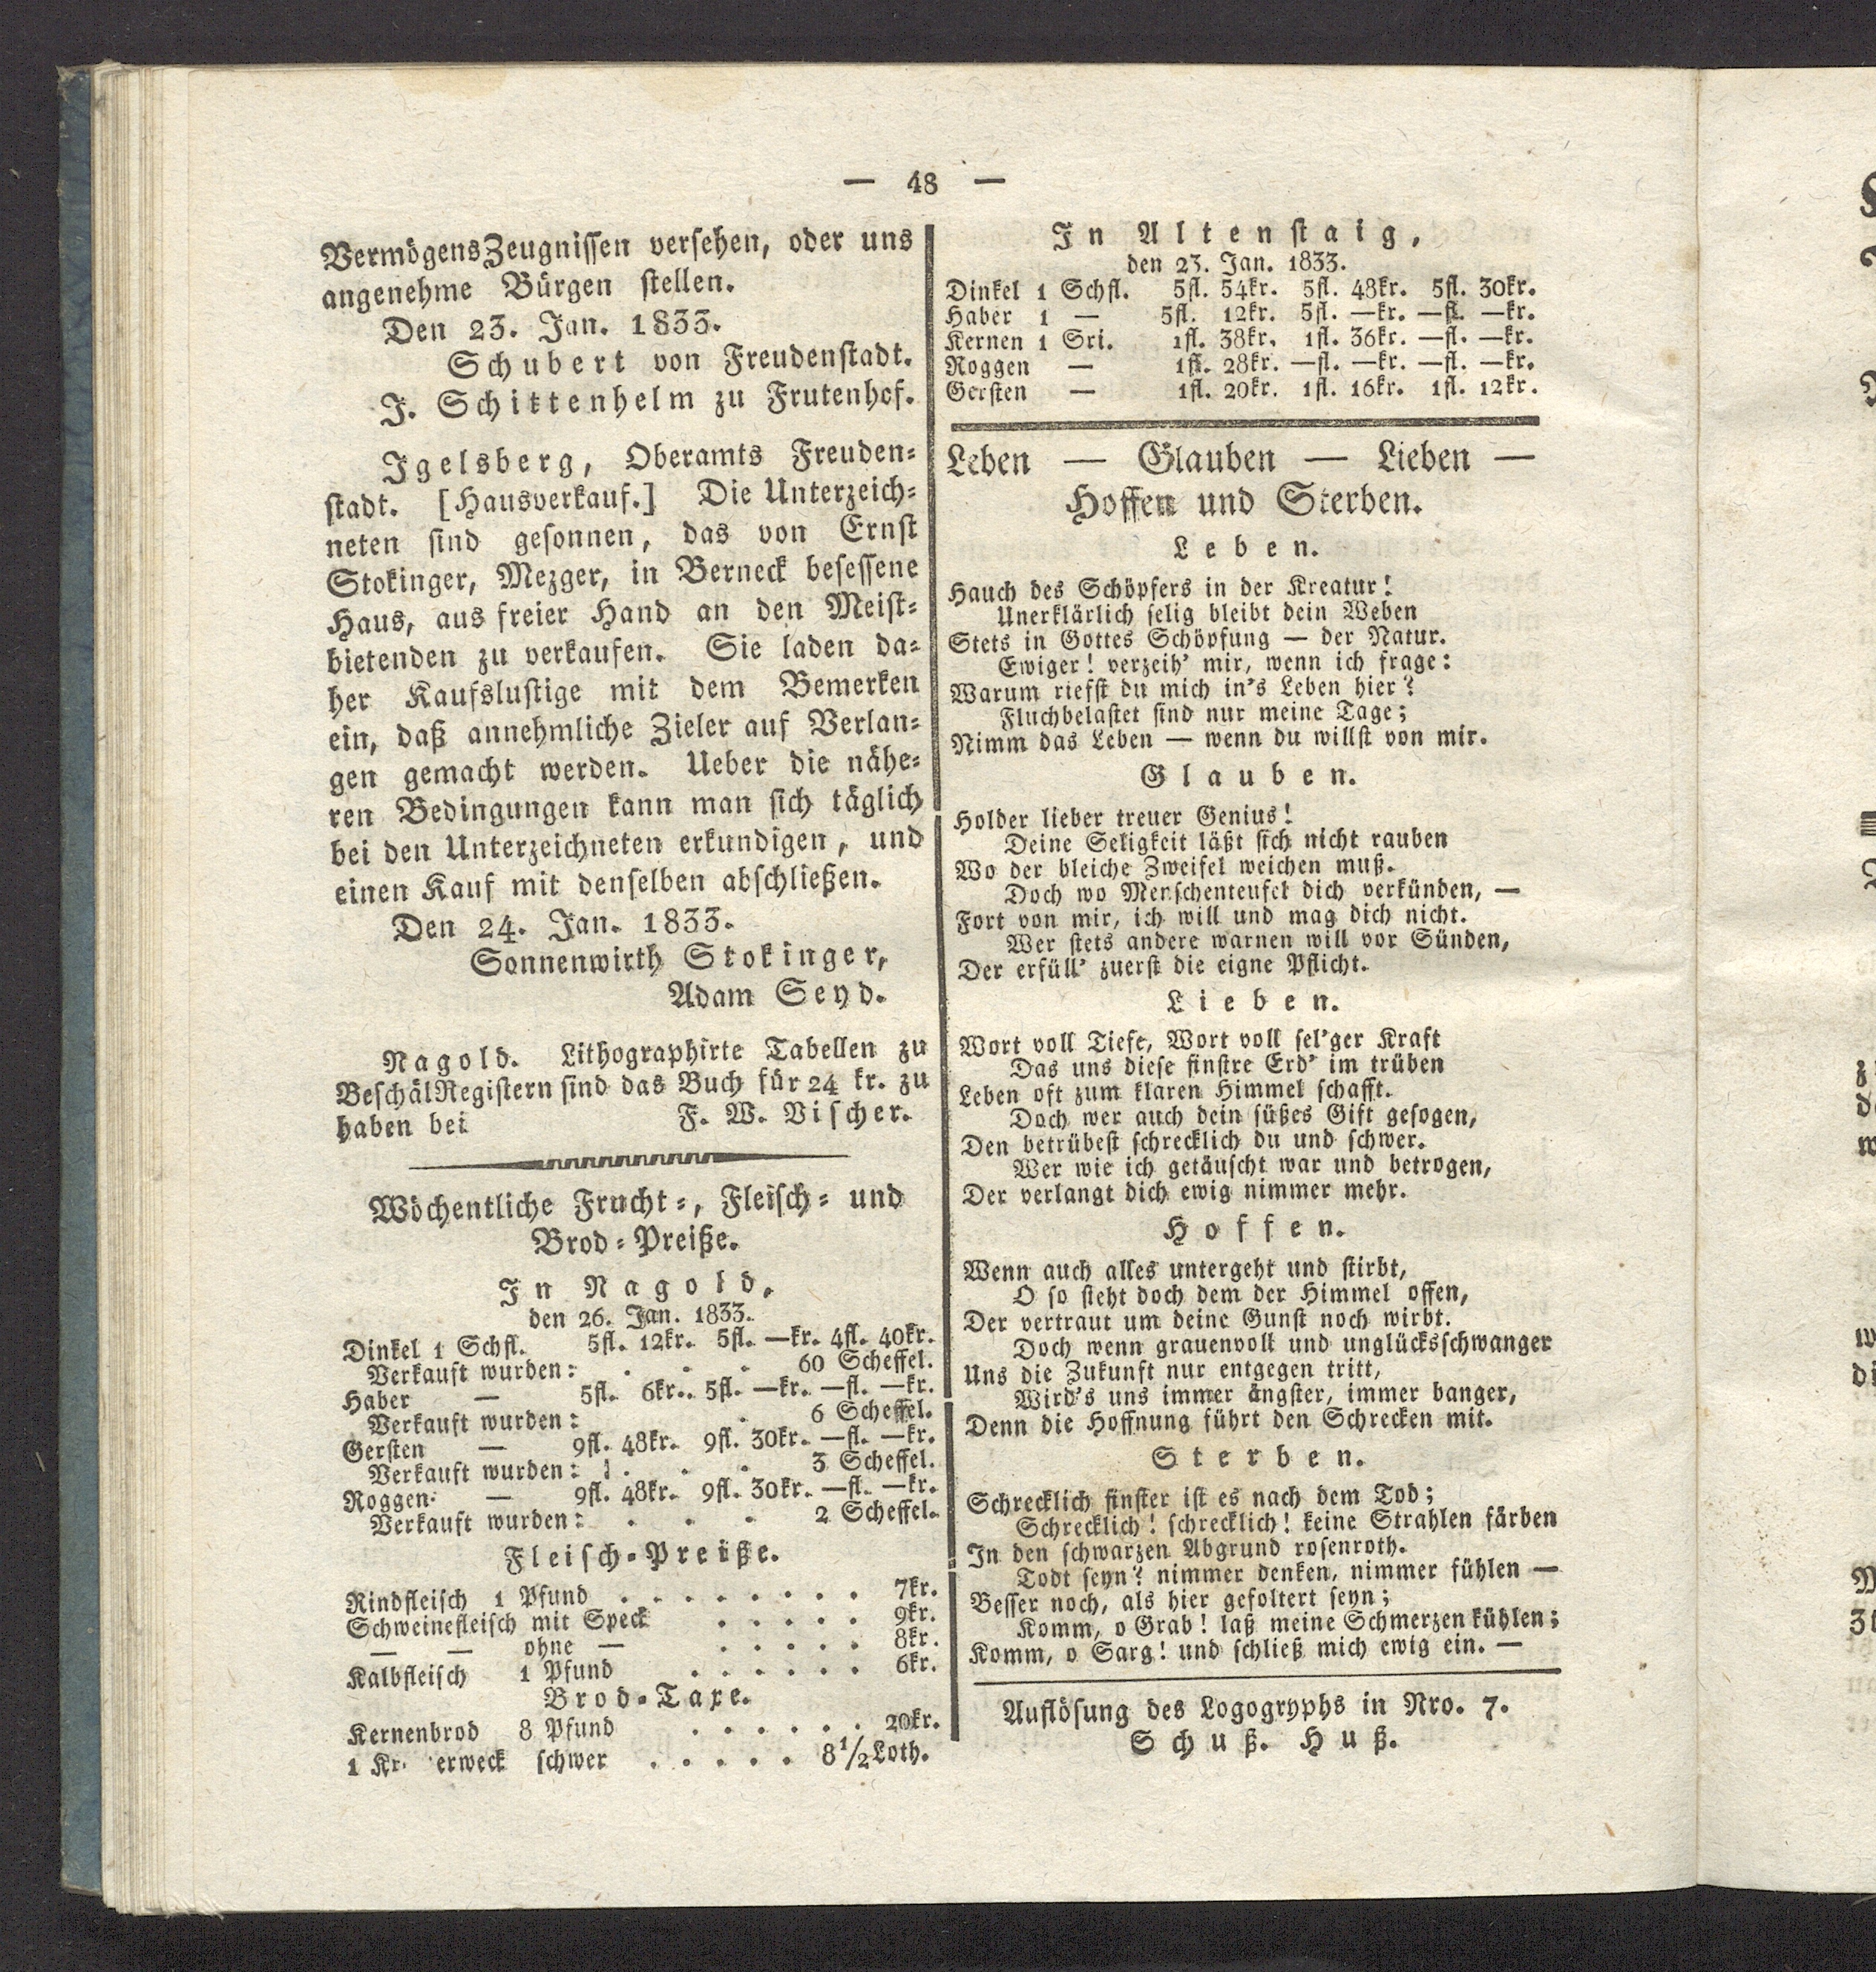 — 48 —
VermögensZeugnissen versehen, oder uns
angenehme Bürgen stellen.
Den 23. Jan. 1833.
Schubert von Freudenstadt.
J. Schittenhelm zu Frutenhof.
Igelsberg, Oberamts Freuden=
stadt. [Hausverkauf.] Die Unterzeich=
neten sind gesonnen, das von Ernst
Stokinger, Mezger, in Berneck besessene
Haus, aus freier Hand an den Meist=
bietenden zu verkaufen. Sie laden da=
her Kaufslustige mit dem Bemerken
ein, daß annehmliche Zieler auf Verlan=
gen gemacht werden. Ueber die nähe=
ren Bedingungen kann man sich täglich
bei den Unterzeichneten erkundigen, und
einen Kauf mit denselben abschließen.
Den 24. Jan. 1833.
Sonnenwirth Stokinger,
Adam Seyd.
Nagold. Lithographirte Tabellen zu
BeschälRegistern sind das Buch für 24 kr. zu
haben bei F. W. Vischer.
Wöchentliche Frucht=, Fleisch= und
Brod=Preiße.
In Nagold,
den 26. Jan. 1833.
Dinkel 1 Schfl. 5fl. 12kr. 5fl. —kr. 4fl. 40kr.
Verkauft wurden: . . . 60 Scheffel.
Haber — 5fl. 6kr. 5fl. —kr. —fl. —kr.
Verkauft wurden: . 6 Scheffel.
Gersten — 9fl. 48kr. 9fl. 30kr. —fl. —kr.
Verkauft wurden: . . . 3 Scheffel.
Roggen — 9fl. 48kr. 9fl. 30kr. —fl. —kr.
Verkauft wurden: . . . 2 Scheffel.
Fleisch=Preiße.
Rindfleisch 1 Pfund . . . . . . . . 7kr.
Schweinefleisch mit Speck . . . . . 9kr.
— — ohne — . . . . . 8kr.
Kalbfleisch 1 Pfund . . . . . . 6kr.
Brod=Taxe.
Kernenbrod 8 Pfund . . . . . . 20kr.
1 Kr. erweck schwer . . . . . 8 1/2 Loth.
In Altenstaig,
den 23. Jan. 1833.
Dinkel 1 Schfl. 5fl. 54kr. 5fl. 48kr. 5fl. 30kr.
Haber 1 — 5fl. 12kr. 5fl. —kr. —fl. —kr.
Kernen 1 Sri. 1fl. 38kr. 1fl. 36kr. —fl. —kr.
Roggen — 1fl. 28kr. —fl. —kr. —fl. —kr.
Gersten — 1fl. 20kr. 1fl. 16kr. 1fl. 12kr.
Leben — Glauben — Lieben —
Hoffen und Sterben.
Leben.
Hauch des Schöpfers in der Kreatur!
Unerklärlich selig bleibt dein Weben
Stets in Gottes Schöpfung — der Natur.
Ewiger! verzeih' mir, wenn ich frage:
Warum riefst du mich in's Leben hier?
Fluchbelastet sind nur meine Tage;
Nimm das Leben — wenn du willst von mir.
Glauben.
Holder lieber treuer Genius!
Deine Seligkeit läßt sich nicht rauben
Wo der bleiche Zweifel weichen muß.
Doch wo Menschenteufel dich verkünden, —
Fort von mir, ich will und mag dich nicht.
Wer stets andere warnen will vor Sünden,
Der erfüll' zuerst die eigne Pflicht.
Lieben.
Wort voll Tiefe, Wort voll sel'ger Kraft
Das uns diese finstre Erd' im trüben
Leben oft zum klaren Himmel schafft.
Doch wer auch dein süßes Gift gesogen,
Den betrübest schrecklich du und schwer.
Wer wie ich getäuscht war und betrogen,
Der verlangt dich ewig nimmer mehr.
Hoffen.
Wenn auch alles untergeht und stirbt,
O so steht doch dem der Himmel offen,
Der vertraut um deine Gunst noch wirbt.
Doch wenn grauenvoll und unglücksschwanger
Uns die Zukunft nur entgegen tritt,
Wird's uns immer ängster, immer banger,
Denn die Hoffnung führt den Schrecken mit.
Sterben.
Schrecklich finster ist es nach dem Tod;
Schrecklich! schrecklich! keine Strahlen färben
In den schwarzen Abgrund rosenroth.
Todt seyn? nimmer denken, nimmer fühlen —
Besser noch, als hier gefoltert seyn;
Komm, o Grab! laß meine Schmerzen kühlen;
Komm, o Sarg! und schließ mich ewig ein. —
Auflösung des Logogryphs in Nro. 7.
Schuß. Huß.